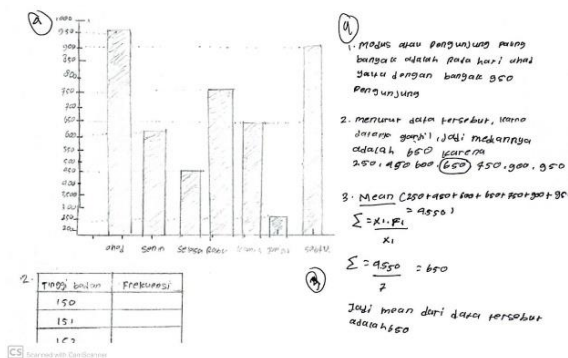 a
1000
950
900
850
800
700
600
500
400
300
250
200
ahad Senin Selasa Rabu Kamis Jumat Sabtu
2.
Tinggi badan Frekuensi
150
151
152
a
1. Modus atau pengunjung paling
banyak adalah pada hari ahad
yaitu dengan banyak 950
Pengunjung
2. menurut data tersebut, karna
datanya ganjil, jadi mediannya
adalah 650 karena
250, 450 600, 650, 750, 900, 950
3. Mean (250+450+600+650+750+900+95
= 4550)
Σ = x1.F1
x1
Σ = 4550 = 650
7
Jadi mean dari data tersebut
adalah 650
CS Scanned with CamScanner